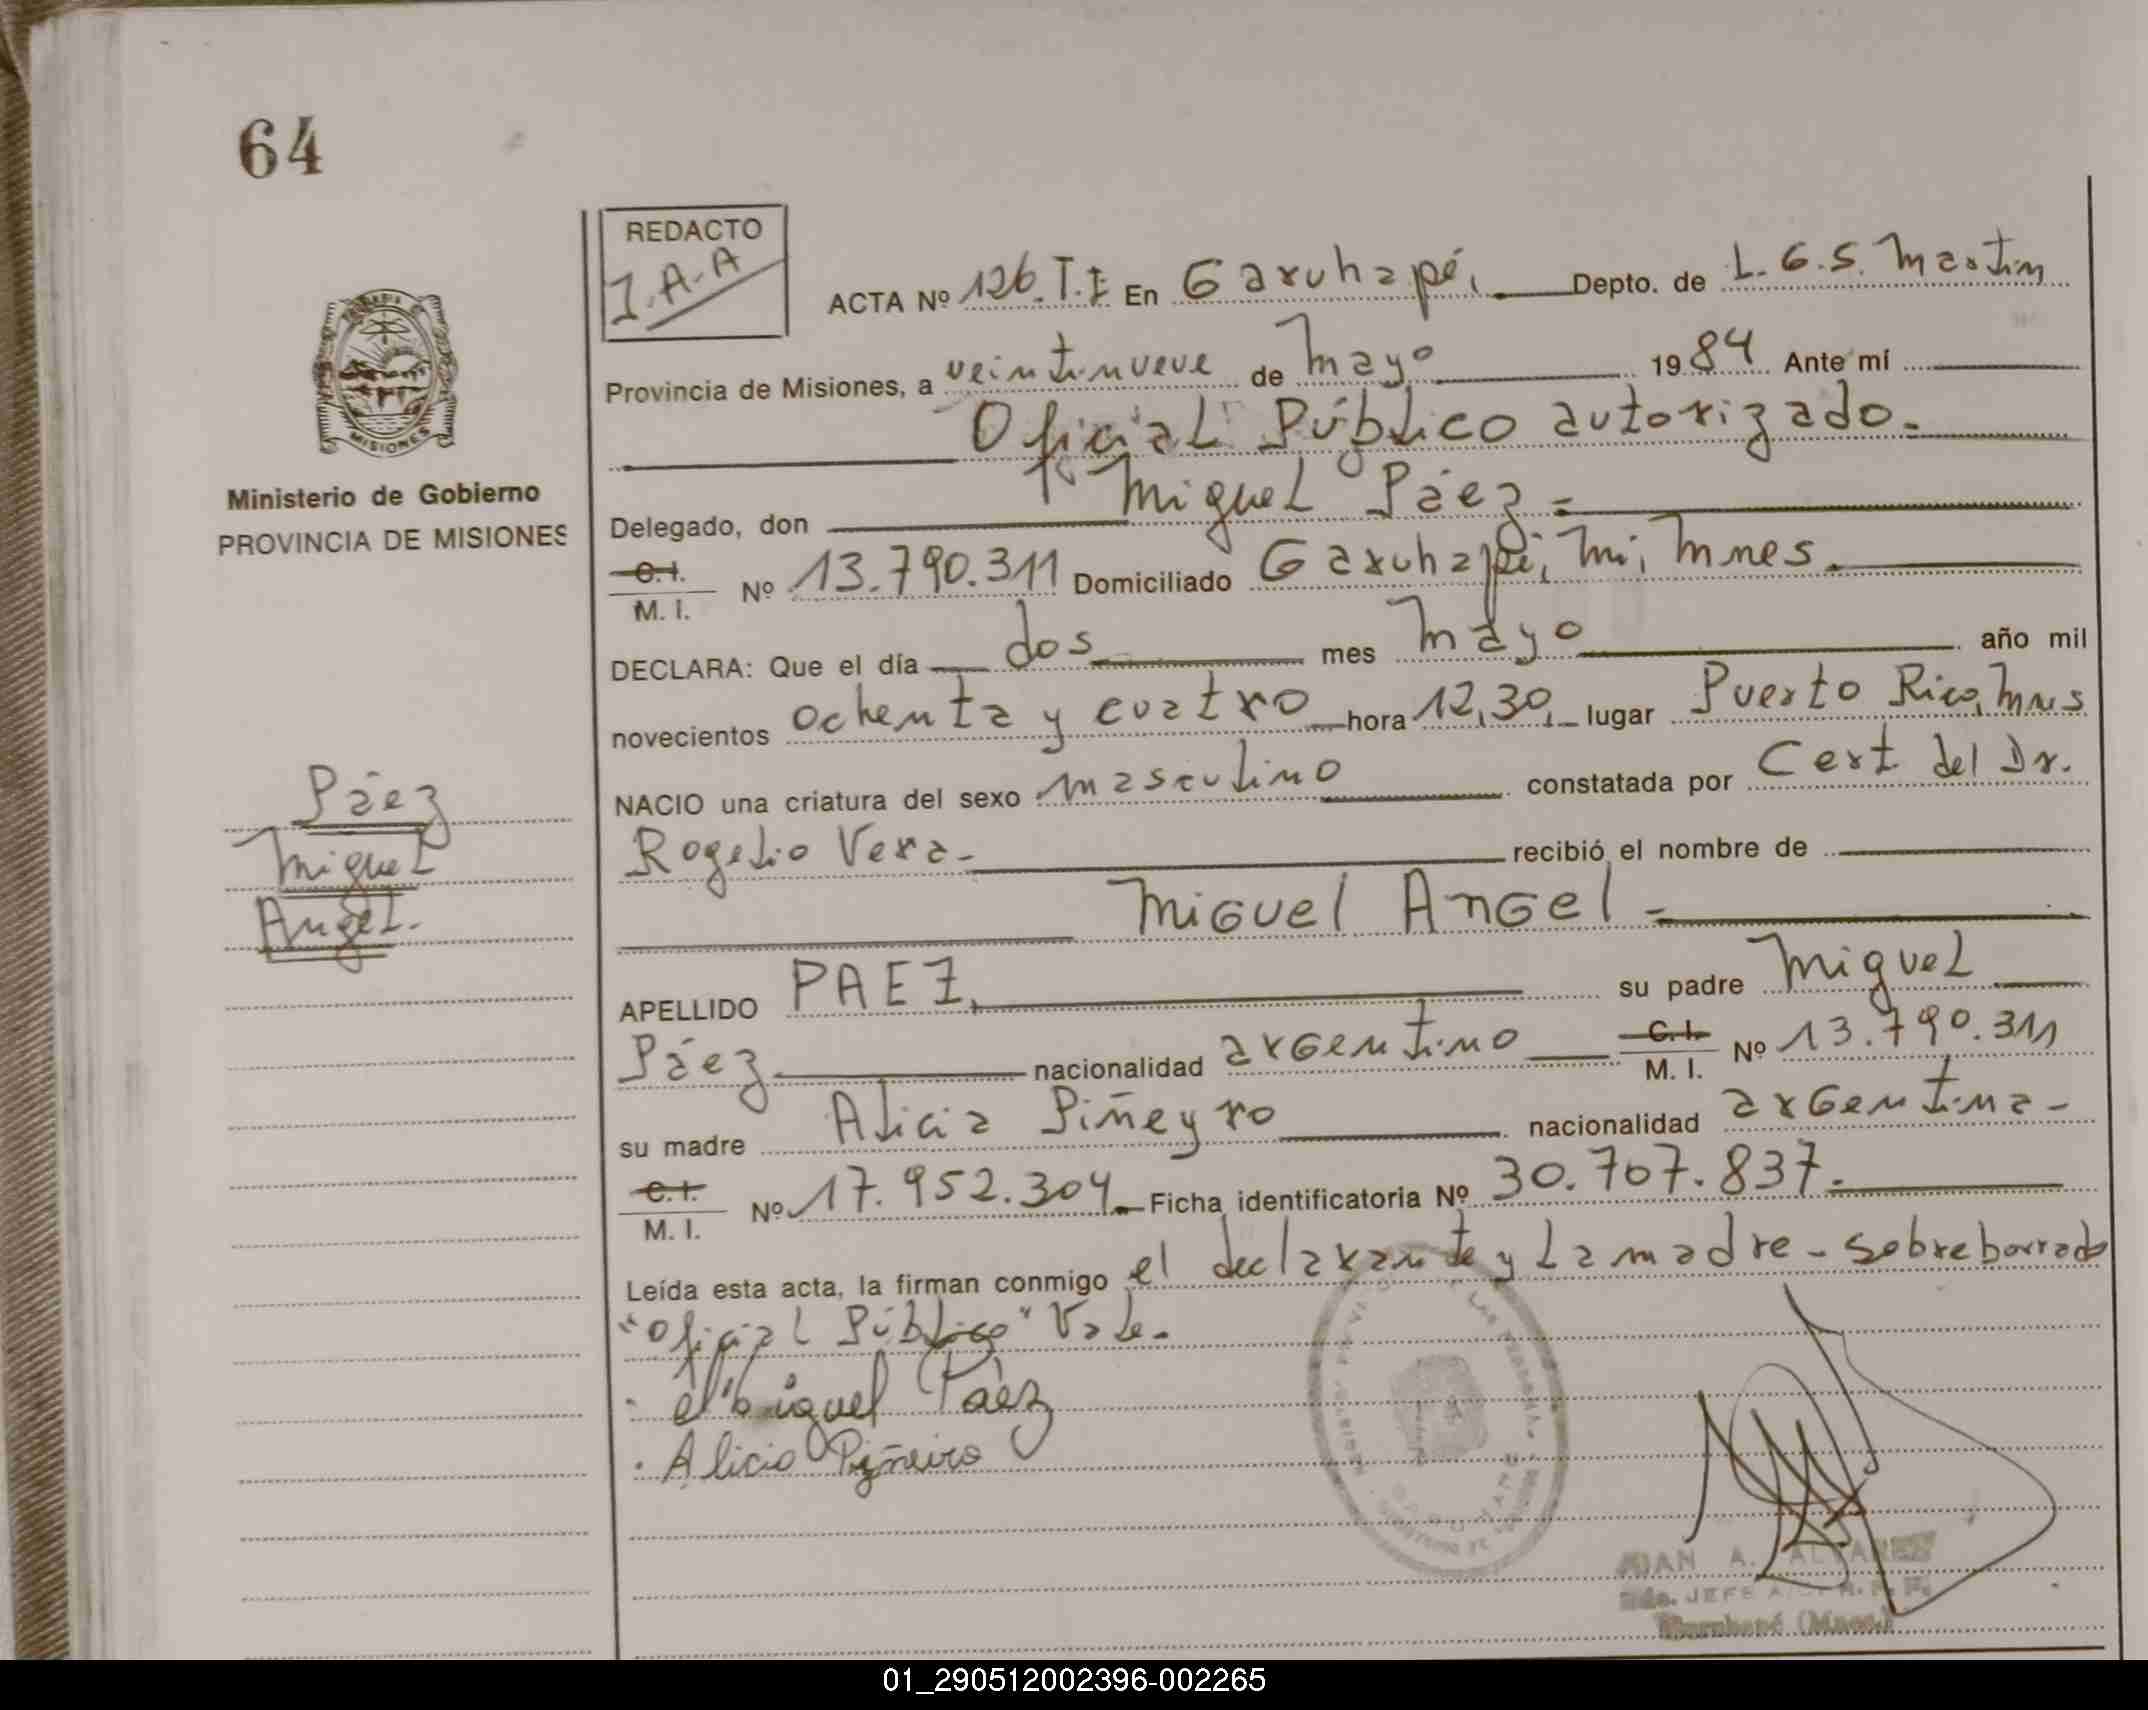 64
REDACTO
J.A-A
ACTA Nº 126.T.I En Garuhapé, Depto. de L.G.S. Martin
Provincia de Misiones, a veintinueve de Mayo 1984 Ante mí
Oficial Público autorizado.
MISIONES
Ministerio de Gobierno
PROVINCIA DE MISIONES
Delegado, don Miguel Páez
C.I. / M.I. Nº 13.790.311 Domiciliado Garuhapé, Mi, Mnes.
DECLARA: Que el día dos mes Mayo año mil
novecientos ochenta y cuatro hora 12,30, lugar Puerto Rico, Mns
NACIO una criatura del sexo masculino constatada por Cert del Dr.
Rogelio Vera - recibió el nombre de
Miguel Angel -
Páez
Miguel
Angel.
APELLIDO PAEZ, su padre Miguel
Páez nacionalidad argentino C.I. / M.I. Nº 13.790.311
su madre Alicia Piñeyro nacionalidad argentina -
C.I. / M.I. Nº 17.952.304 Ficha identificatoria Nº 30.707.837.
Leída esta acta, la firman conmigo el declarante y La madre - sobreborrado
"Oficial Público" Vale -
Miguel Páez
Alicia Piñeiro
JUAN A. ALVAREZ
JEFE
Garuhapé (Mnes.)
01_290512002396-002265